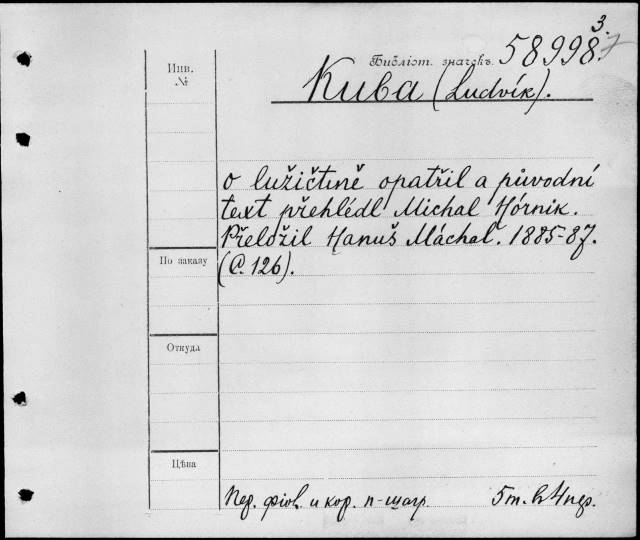 3.
Инв. №
Библіот. значекъ 58998.
Kuba (Ludvík).
o lužičtině opatřil a původní
text přehlédl Michal Hórnik.
Přeložil Hanuš Máchal. 1885-87.
По заказу
(Č. 126).
Откуда
Цѣна
Пер. фіол. и кор. п-шагр. 5 т. въ 4 пер.